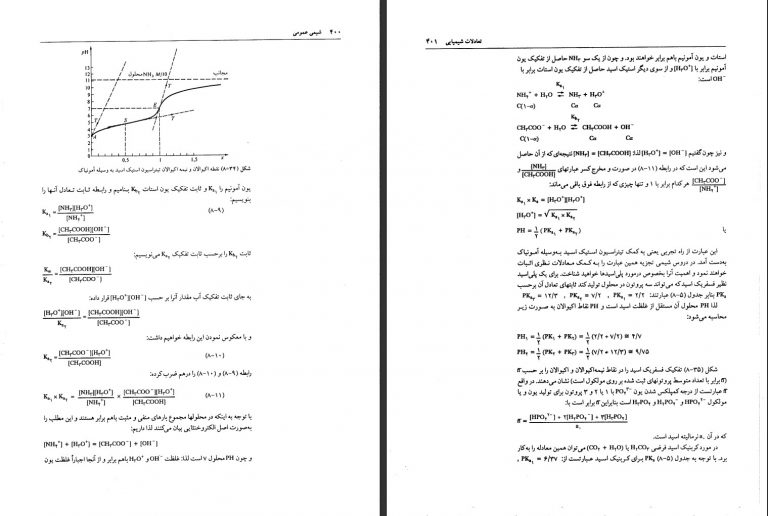 ۴۰۰ شیمی عمومی
PH
مجانب
محلول NH۳ M/10
شکل (۳۴-۸) نقطه اکیوالان و نیمه اکیوالان تیتراسیون استیک اسید به وسیله آمونیاک
یون آمونیم را Ka۱ و ثابت تفکیک یون استات Kb۲ بنامیم و رابطه ثابت تعادل آنها را
بنویسیم:
Ka۱ = [NH۳][H۳O+] / [NH۴+] (۸-۹)
Kb۲ = [CH۳COOH][OH−] / [CH۳COO−]
ثابت Kb۲ را برحسب ثابت تفکیک Ka۲ می‌نویسیم:
= [CH۳COOH][OH−] / [CH۳COO−]
به جای ثابت تفکیک آب مقدار آنرا بر حسب [H۳O+][OH−] قرار داده:
[H۳O+][OH−] / Ka۲ = [CH۳COOH][OH−] / [CH۳COO−]
و با معکوس نمودن این رابطه خواهیم داشت:
Ka۲ = [CH۳COO−][H۳O+] / [CH۳COOH] (۸-۱۰)
رابطه (۸-۹) و (۸-۱۰) را درهم ضرب کرده:
Ka۱ × Ka۲ = [NH۳][H۳O+] / [NH۴+] × [CH۳COO−][H۳O+] / [CH۳COOH] (۸-۱۱)
با توجه به اینکه در محلولها مجموع بارهای منفی و مثبت باهم برابر هستند و این مطلب را
به‌صورت اصل الکتروخنثایی بیان می‌کنند لذا داریم:
[NH۴+] + [H۳O+] = [CH۳COO−] + [OH−]
و چون PH محلول ۷ است لذا: غلظت OH− و H۳O+ باهم برابر و از آنجا اجباراً غلظت یون
تعادلات شیمیایی ۴۰۱
استات و یون آمونیم باهم برابر خواهند بود. و چون از یک سو NH۳ حاصل از تفکیک یون
آمونیم برابر با [H۳O+] و از سوی دیگر استیک اسید حاصل از تفکیک یون استات برابر با
OH− است:
Ka۱
NH۴+ + H۲O ⇌ NH۳ + H۳O+
C(1-α) Cα Cα
Kb۲
CH۳COO− + H۲O ⇌ CH۳COOH + OH−
C(1-α) Cα Cα
و نیز چون گفتیم [OH−] = [H۳O+] لذا: [NH۳] = [CH۳COOH] نتیجه‌ای که از آن حاصل
می‌شود این است که در رابطه (۸-۱۱) در صورت و مخرج کسر عبارتهای [NH۳] / [CH۳COOH] و
[CH۳COO−] / [NH۴+] هر کدام برابر با ۱ و تنها چیزی که از رابطه فوق باقی می‌ماند:
[H۳O+] = √Ka۱ × Ka۲
یا PH = ۱/۲ (PKa۱ + PKa۲)
این عبارت از راه تجربی یعنی به کمک تیتراسیون استیک اسید به‌وسیله آمونیاک
به‌دست آمد. در دروس شیمی تجزیه همین عبارت را به کمک معادلات نظری اثبات
خواهند نمود و اهمیت آنرا بخصوص درمورد پلی‌اسیدها خواهید شناخت. برای یک پلی‌اسید
نظیر فسفریک اسید که می‌تواند سه پروتون در محلول تولید کند ثابتهای تعادل آن برحسب
PKa بنابر جدول (۵-۸) عبارتند: PKa۱ = ۲/۲ ، PKa۲ = ۷/۲ ، PKa۳ = ۱۲/۳
لذا PH محلول آن مستقل از غلظت اسید است و PH نقاط اکیوالان به صورت زیر
محاسبه می‌شود:
PH۱ = ۱/۲ (PK۱ + PK۲) = ۱/۲ (۲/۲ + ۷/۲) ≅ ۴/۷
PH۲ = ۱/۲ (PK۲ + PK۳) = ۱/۲ (۷/۲ + ۱۲/۳) ≅ ۹/۷۵
شکل (۳۵-۸) تفکیک فسفریک اسید را در نقاط نیمه‌اکیوالان و اکیوالان را بر حسب n̄
(n̄ برابر با تعداد متوسط پروتونهای ثبت شده بر روی مولکول است) نشان می‌دهند. در واقع
n̄ عبارتست از درجه کمپلکس شدن یون PO۴۳− با ۱ یا ۲ و ۳ پروتون برای تولید یون و یا
مولکول HPO۴۲− و H۲PO۴− و H۳PO۴ است بنابراین n̄ برابر است با:
n̄ = [HPO۴۲−] + ۲[H۲PO۴−] + ۳[H۳PO۴] / a.
که در آن a. نرمالیته اسید است.
در مورد کربنیک اسید فرضی H۲CO۳ یا (CO۲ + H۲O) می‌توان همین معادله را به‌کار
برد. با توجه به جدول (۵-۸) PKa برای کربنیک اسید عبارتست از: PKa۱ = ۶/۳۷ ،